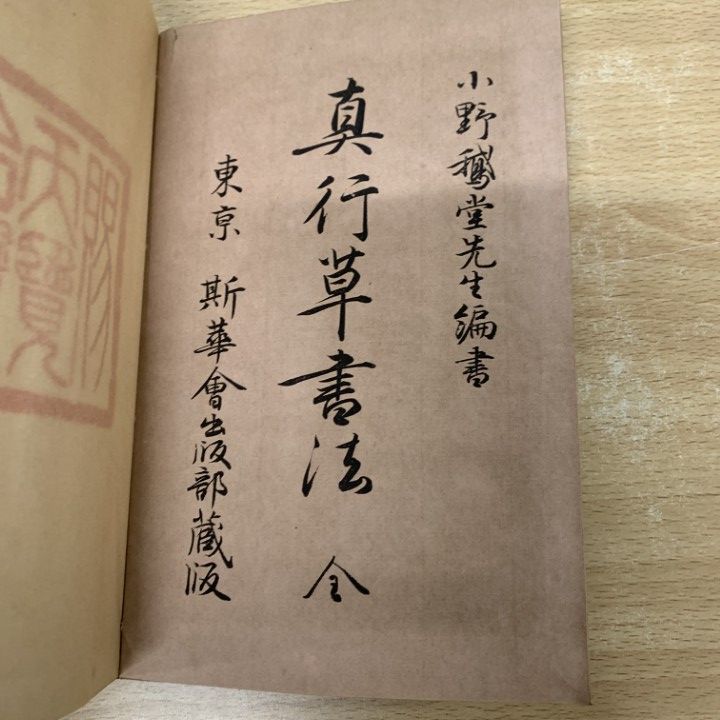 小野鵞堂先生編書
真行草書法 全
東京 斯華會出版部蔵版